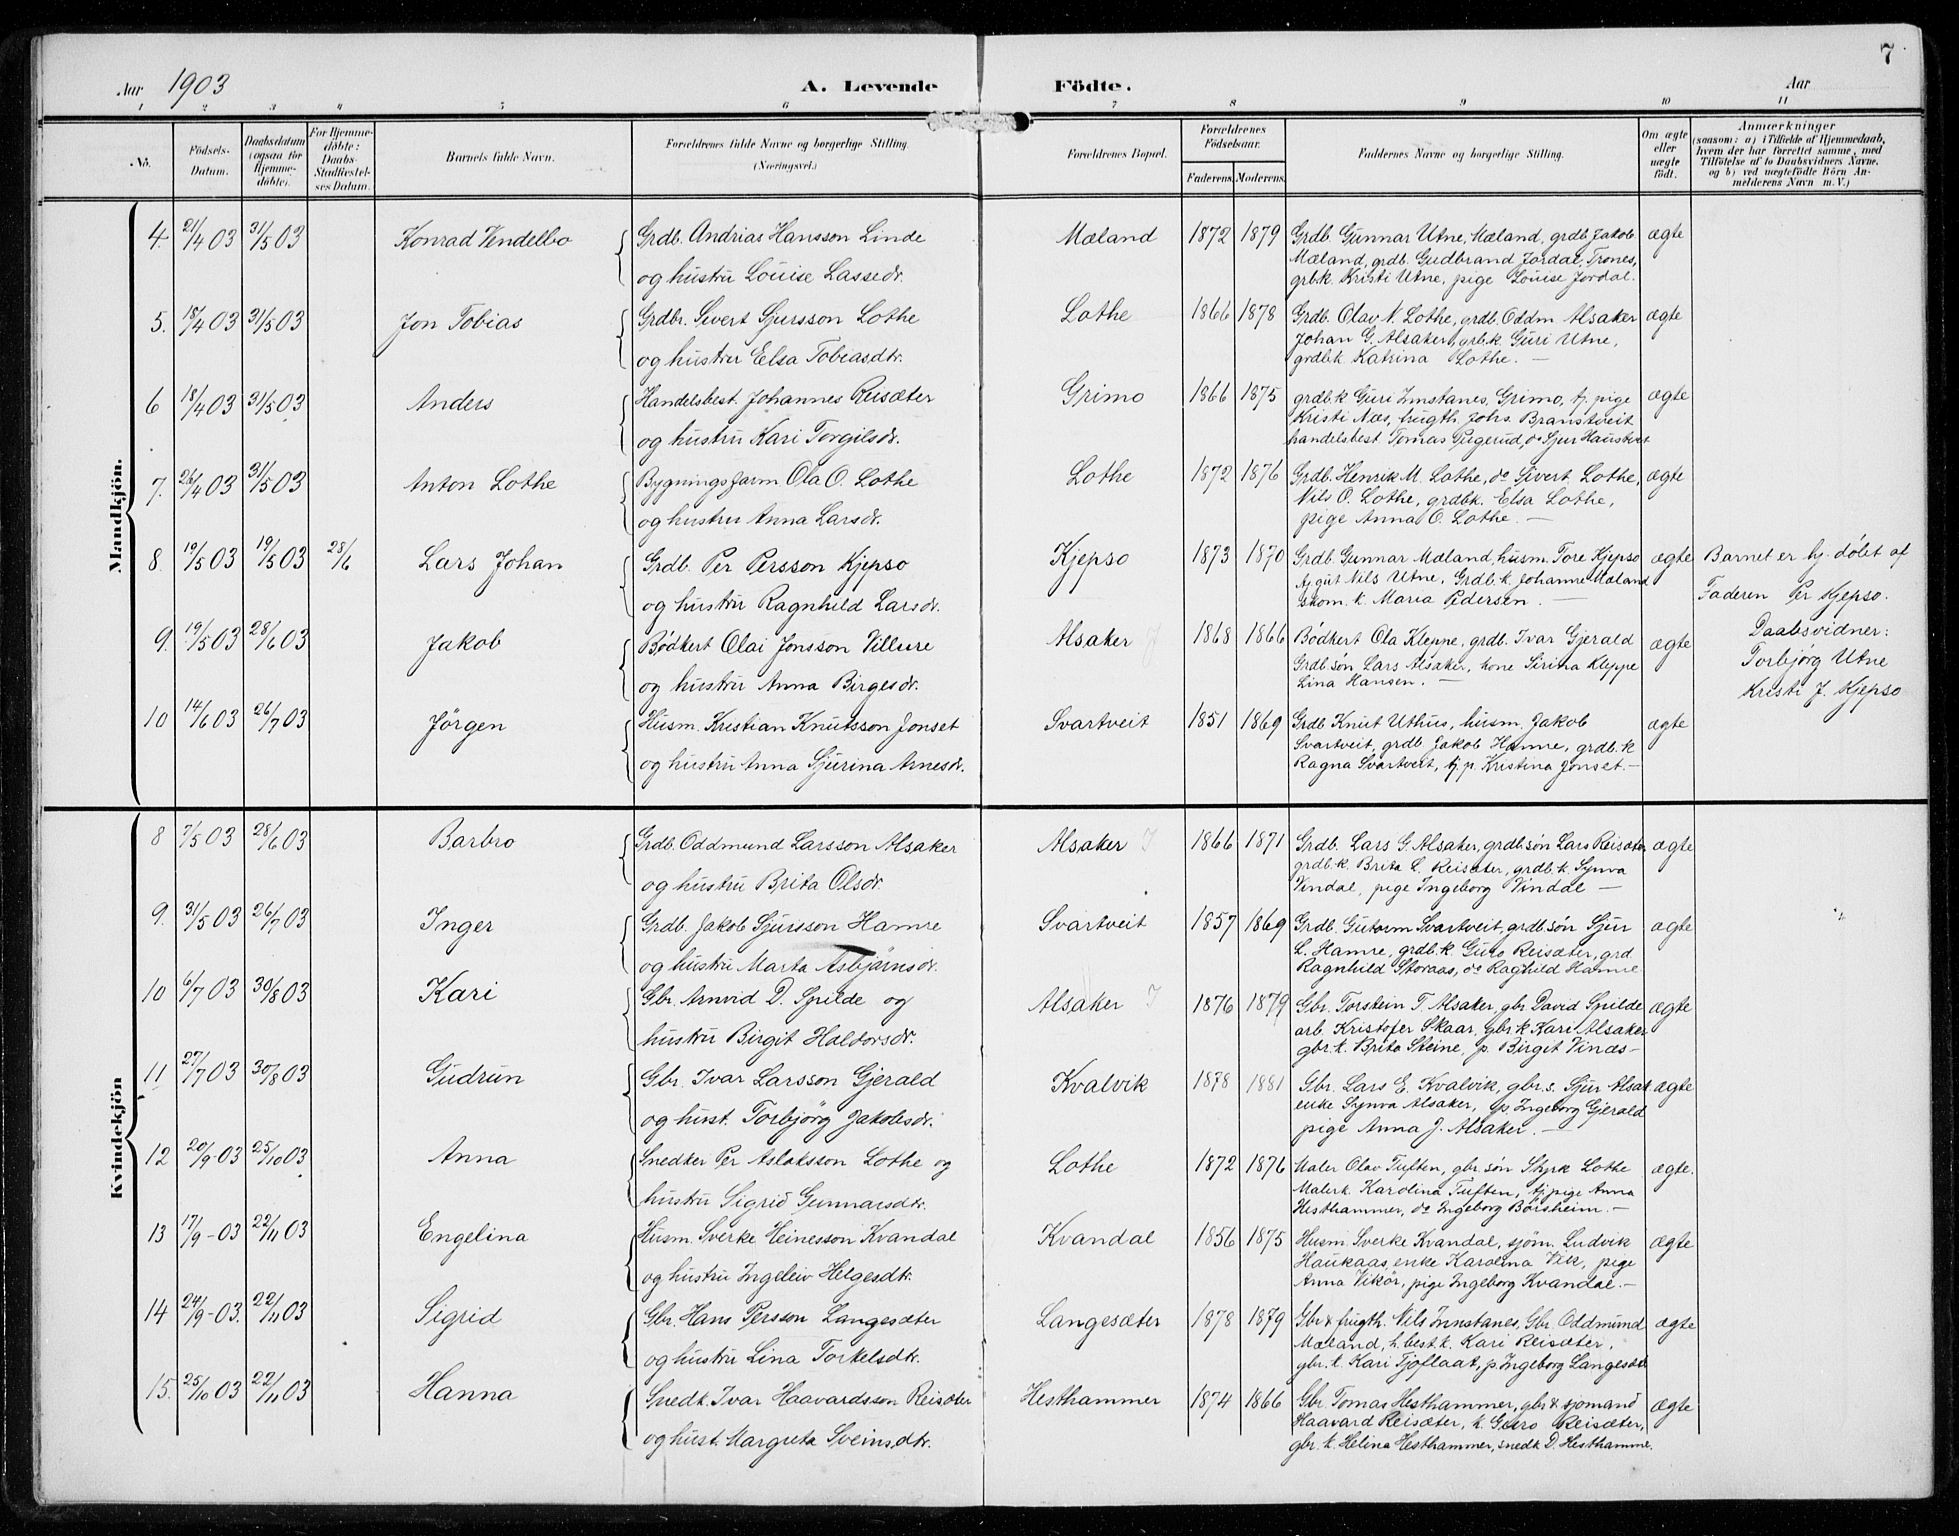 7
Aar 1903 A. Levende Födte. Aar
1 2 3 4 5 6 7 8 9 10 11
No.
Födsels-Datum.
Daabsdatum (ogsaa for Hjemme-döbte).
For Hjemme-döbte: Daabs-Stadfæstel-ses Datum.
Barnets fulde Navn.
Forældrenes fulde Navne og borgerlige Stilling.
(Næringsvei.)
Forældrenes Bopæl.
Forældrenes Födselsaar.
Faderens. Moderens.
Faddernes Navne og borgerlige Stilling.
Om ægte eller uægte födt.
Anmærkninger
(saasom: a) i Tilfælde af Hjemmedaab,
hvem der har forrettet samme, med
Tilföielse af to Daabsvidners Navne,
og b) ved uægtefödte Börn An-
melderens Navn m. V.)
Mandkjön.
4. 21/4 03 31/5 03 Konrad Vendelbo Grdb. Andrias Hansson Linde Mæland 1872 1879 Grdb. Gunnar Utne, Mæland, grdb. Jakob ægte
Mæland, grdb. Gudbrand Jordal, Trones,
og hustru Louise Lassedr. grb.k. Kristi Utne, pige Louise Jordal.
5. 18/4 03 31/5 03 Jon Tobias Grdbr. Sivert Sjursson Lothe Lothe 1866 1878 Grdb. Olav N. Lothe, grdb. Oddm Alsaker ægte
Johan G. Alsaker, grb.k. Guri Utne,
og hustru Elsa Tobiasdtr. grdb.k. Katrina Lothe. —
6 18/4 03 31/5 03 Anders Handelsbest. Johannes Reisæter Grimo 1866 1875 grdb.k Guri Instanes, Grimo, tj. pige ægte
Kristi Næs, frugth. Johs. Branstveit
og hustru Kari Torgilsdr. handelsbest Tomas do Sjur
7. 26/4 03 31/5 03 Anton Lothe Bygningsfarm. Ola O. Lothe Lothe 1872 1876 Grdb. Henrik M. Lothe, do Sivert Lothe, ægte
Nils O. Lothe, grdbk. Elsa Lothe,
og hustru Anna Larsdr. pige Anna O. Lothe. —
8. 19/5 03 19/5 03 28/6 Lars Johan Grdb. Per Persson Kjepso Kjepso 1873 1870 Grdb. Gunnar Mæland, husm. Tore Kjepso ægte Barnet er hj. döbt af
Nils Utne, Grdb.k. Johanne Mæland Faderen Per Kjepso.
og hustru Ragnhild Larsdr. skom. k. Maria Pedersen. —
9. 19/5 03 28/6 03 Jakob Bödkert Olai Jonsson Villure Alsaker 1868 1866 Bödkert Ola Kleppe, grdb. Ivar Gjerald ægte Daabsvidner:
Grdb.søn Lars Alsaker, kone Sirina Kleppe Torbjørg Utne
og hustru Anna Birgesdr. Lina Hansen. — Kristi J. Kjepso
10 14/6 03 26/7 03 Jörgen Husm. Kristian Knutsson Jonset Svartveit 1851 1869 Grdb Knut Uthus, husm. Jakob ægte
Svartveit, grdb. Jakob Hamre, grdb.k
og hustru Anna Sjurina Arnesdr. Ragna Svartveit, tj. p. Kristina Jonset. —
Kvindekjön
8 7/5 03 28/6 03 Barbro Grdb. Oddmund Larsson Alsaker Alsaker 1866 1871 Grdb. Lars G. Alsaker, grdb.søn Lars Reisæter, ægte
grdb.k. Brita L. Reisæter, grdb.k. Synva
og hustru Brita Olsdr. Vindal, pige Ingeborg Vindal —
9. 31/5 03 26/7 03 Inger Grdb. Jakob Sjursson Hamre Svartveit 1857 1869 Grdb. Gutorm Svartveit, grdb.søn Sjur ægte
L. Hamre, grdb.k. Guro Reisæter, grd
og hustru Marta Asbjörnsdr. Ragnhild Storaas, do Raghild Hamre
10 6/7 03 30/8 03 Kari Gbr. Arnvid D. Spilde og Alsaker 1876 1879 Gbr. Torstein T. Alsaker, gbr David Spilde ægte
arb. Kristofer Skaar, gbr.k Kari Alsaker
hustru Birgit Haldorsdr. gbr.k. Brita Steine, p. Birgit Vinæs —
11 27/7 03 30/8 03 Gudrun Gbr. Ivar Larsson Gjerald Kvalvik 1878 1881 Gbr. Lars E. Kvalvik, gbr.s. Sjur Alsak ægte
enke Synva Alsaker, gp. Ingeborg Gjerald
og hust. Torbjörg Jakobsdr. pige Anna J. Alsaker. —
12 20/9-03 25/10 03 Anna Snedker Per Aslaksson Lothe og Lothe 1872 1876 Maler Olav Tuften, gbr.søn Styrk Lothe ægte.
Malerk. Karolina Tuften, tj.pige Anna
hustru Sigrid Gunnarsdtr. Hesthammer, do Ingeborg Börsheim. —
13 17/9-03 22/11 03 Engelina Husm. Sverke Heinesson Kvandal Kvandal 1856 1875 Husm. Sverke Kvandal, sjöm. Ludvik ægte
Haukaas, enke Karolina Vik, pige
og hustru Ingeleiv Helgesdtr. Anna Vikör, pige Ingeborg Kvandal. —
14 24/9-03. 22/11 03 Sigrid Gbr. Hans Persson Langesæter Langesæter 1878 1879 Gbr & frugth. Nils Instanes, Gbr. Oddmund ægte
Mæland, h.best.k. Kari Reisæter,
og hustru Lina Torkelsdtr. gbr.k. Kari Tjoflaat, p Ingeborg Langesæt
15. 25/10 03 22/11 03 Hanna Snedk. Ivar Haavardsson Reisæter Hesthammer 1874 1866 Gbr. Tomas Hesthammer, gbr & sjomand ægte
Haavard Reisæter, k. Guro Reisæter,
og hust. Margreta Sveinsdtr. gbr. k. Helina Hesthammer, snedk D. Hesthamme.